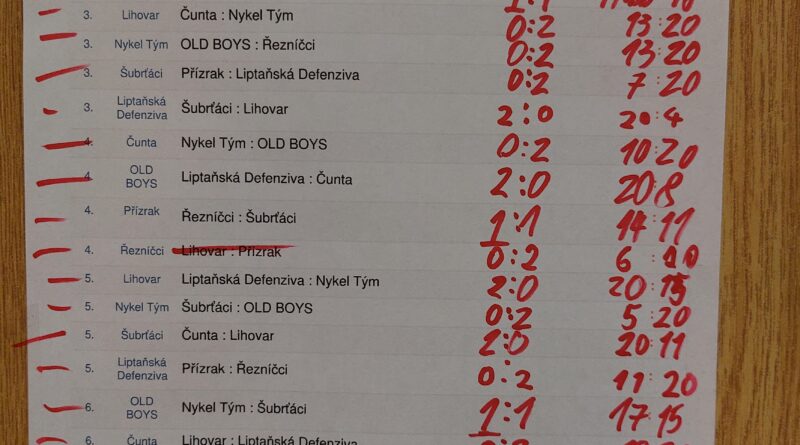 3. Lihovar Čunta : Nykel Tým 0:2 13:20
3. Nykel Tým OLD BOYS : Řezníčci 0:2 13:20
3. Šubrťáci Přízrak : Liptaňská Defenziva 0:2 7:20
3. Liptaňská Defenziva Šubrťáci : Lihovar 2:0 20:4
4. Čunta Nykel Tým : OLD BOYS 0:2 10:20
4. OLD BOYS Liptaňská Defenziva : Čunta 2:0 20:8
4. Přízrak Řezníčci : Šubrťáci 1:1 14:11
4. Řezníčci Lihovar : Přízrak 0:2 6
5. Lihovar Liptaňská Defenziva : Nykel Tým 2:0 20:15
5. Nykel Tým Šubrťáci : OLD BOYS 0:2 5:20
5. Šubrťáci Čunta : Lihovar 2:0 20:11
5. Liptaňská Defenziva Přízrak : Řezníčci 0:2 11:20
6. OLD BOYS Nykel Tým : Šubrťáci 1:1 17:15
6. Čunta Lihovar : Liptaňská Defenziva